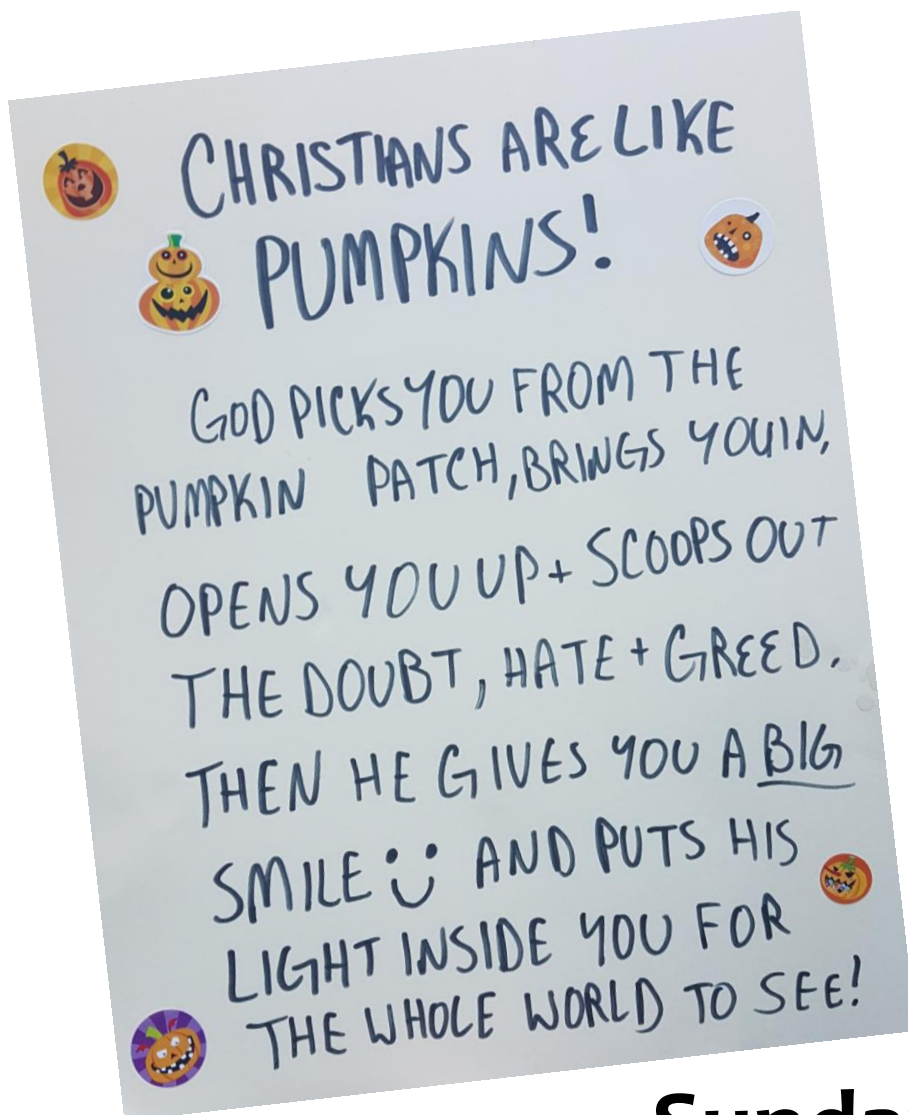 CHRISTIANS ARE LIKE
PUMPKINS!
GOD PICKS YOU FROM THE
PUMPKIN PATCH, BRINGS YOU IN,
OPENS YOU UP + SCOOPS OUT
THE DOUBT, HATE + GREED.
THEN HE GIVES YOU A BIG
SMILE AND PUTS HIS
LIGHT INSIDE YOU FOR
THE WHOLE WORLD TO SEE!